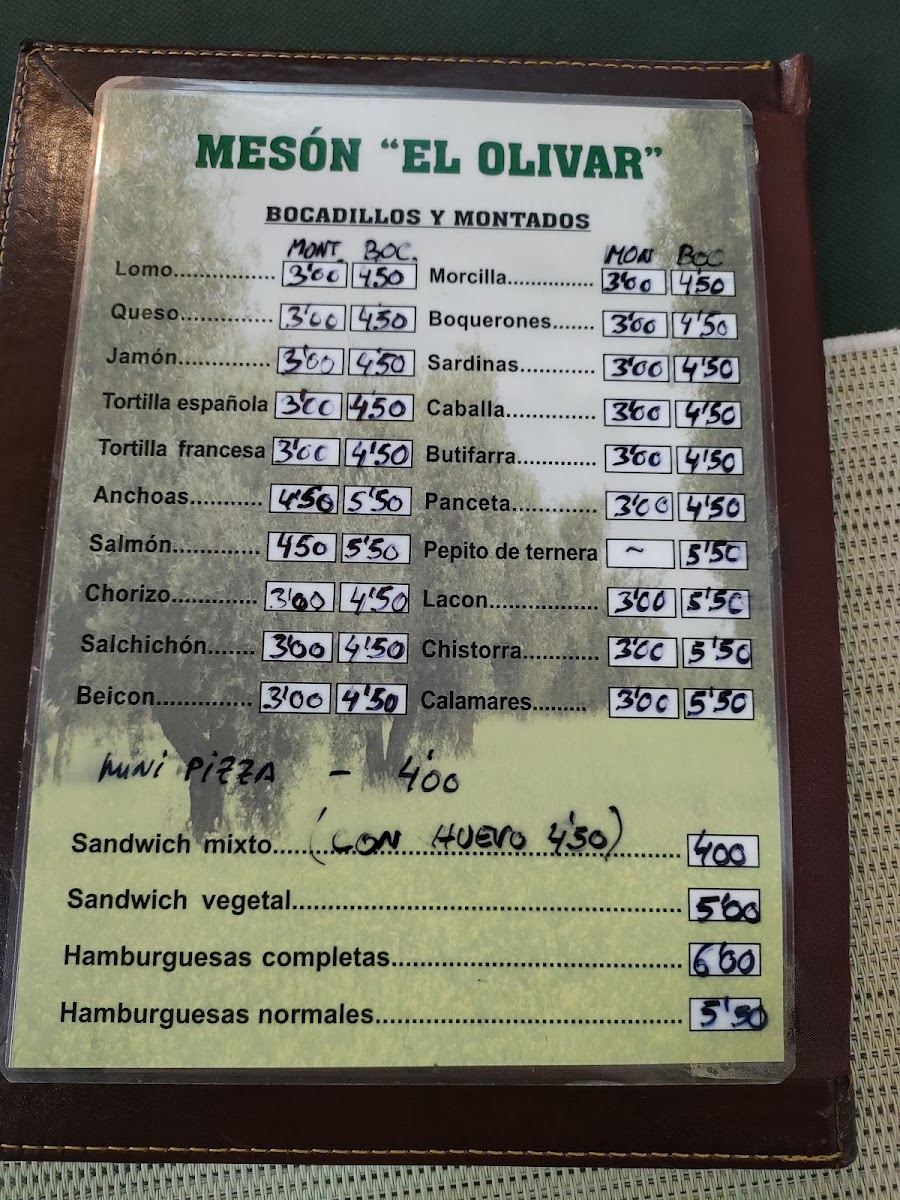 MESÓN “EL OLIVAR”
BOCADILLOS Y MONTADOS
MONT. BOC. MON BOC
Lomo................ 3'00 4'50 Morcilla............... 3'00 4'50
Queso.............. 3'00 4'50 Boquerones....... 3'00 4'50
Jamón.............. 3'00 4'50 Sardinas............ 3'00 4'50
Tortilla española 3'00 4'50 Caballa.............. 3'00 4'50
Tortilla francesa 3'00 4'50 Butifarra............. 3'00 4'50
Anchoas........... 4'50 5'50 Panceta............. 3'00 4'50
Salmón............. 450 5'50 Pepito de ternera ~ 5'50
Chorizo............. 3'00 4'50 Lacon................. 3'00 5'50
Salchichón....... 3'00 4'50 Chistorra............ 3'00 5'50
Beicon.............. 3'00 4'50 Calamares......... 3'00 5'50
MINI PIZZA - 4'00
Sandwich mixto.... (CON HUEVO 4'50) ........ 400
Sandwich vegetal.................................................... 5'00
Hamburguesas completas....................................... 6'00
Hamburguesas normales......................................... 5'50